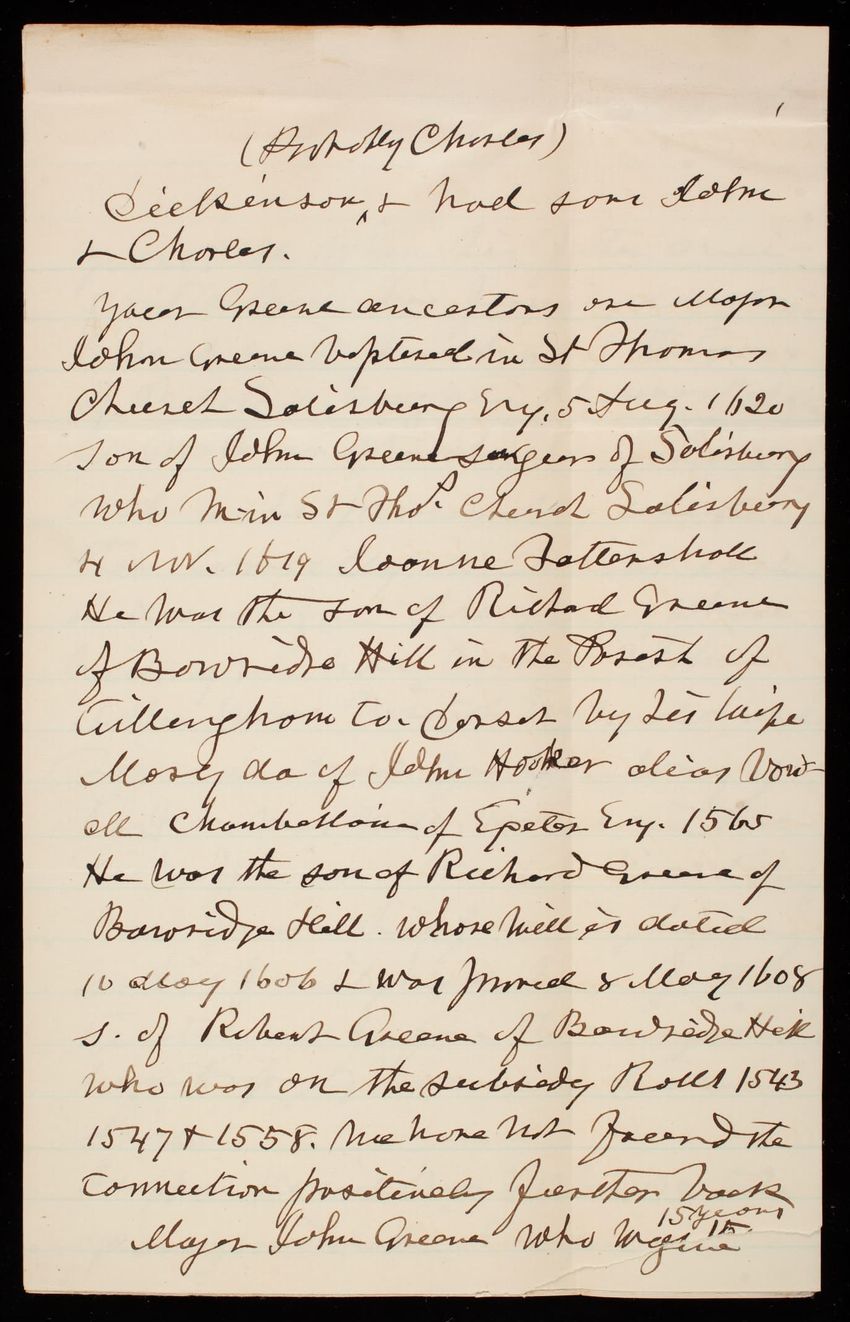 (Probably Charles)
Dickenson, & had sons John
& Charles.
Your Greene ancestors are Major
John Greene baptised in St Thomas
Church Salisbury Eng. 5 Aug. 1620
son of John Greene surgeon of Salisbury
who m in St Thos. Church Salisbury
4 Nov. 1619 Joanne Tattershall
He was the son of Richard Greene
of Bowridge Hill in the Forest of
Gillingham Co. Dorset by his wife
Mary da of John Hooker alias Vow-
ell Chamberlain of Exeter Eng. 1565
He was the son of Richard Greene of
Bowridge Hill. whose will is dated
10 May 1606 & was proved 8 May 1608
s. of Robert Greene of Bowridge Hill
who was on the subsidy Rolls 1543
1547 & 1558. We have not found the
connection positively further back
15 years
Major John Greene who